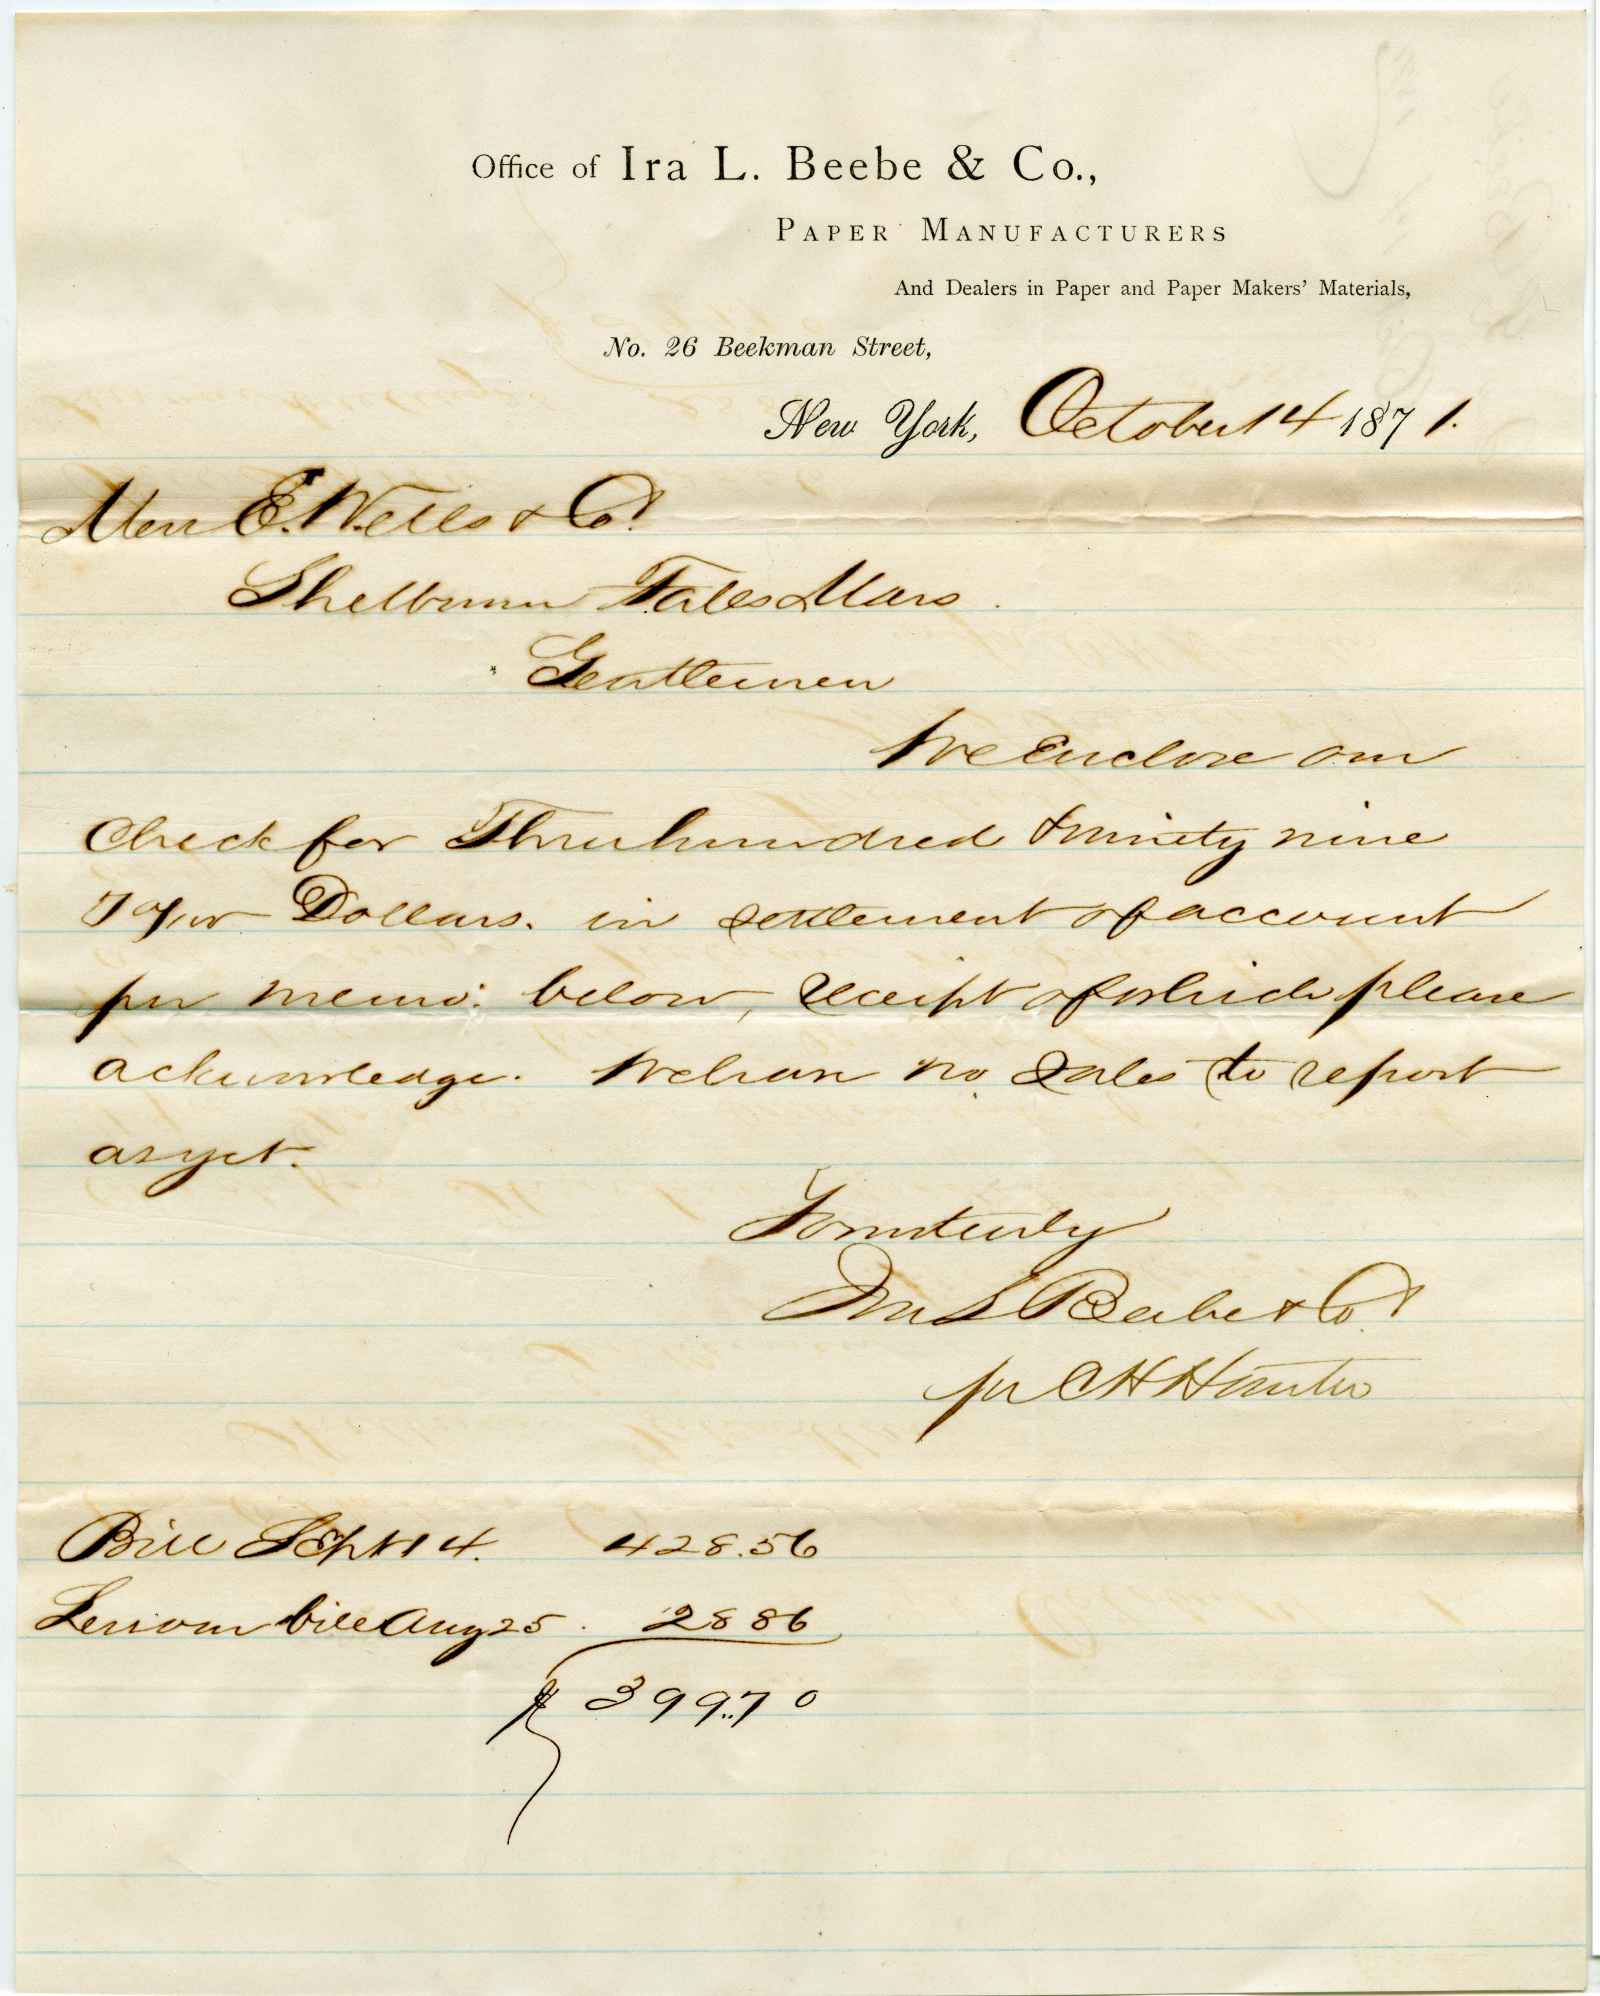 Office of Ira L. Beebe & Co.,
Paper Manufacturers
And Dealers in Paper and Paper Makers' Materials,
No. 26 Beekman Street,
New York, October 14 1871.
Mess E. Wells & Co.
Shelburne Falls Mass.
Gentlemen
We Enclose our
Check for Three hundred & ninety nine
70/100 Dollars. in settlement of account
per memo: below, receipt of which please
acknowledge. We have no Sales to report
as yet.
Yours truly
Ira L Beebe & Co.
per C H Hunter
Bill Sept 14. 428.56
Less our bill Aug 25. 28 86
$ 399.70